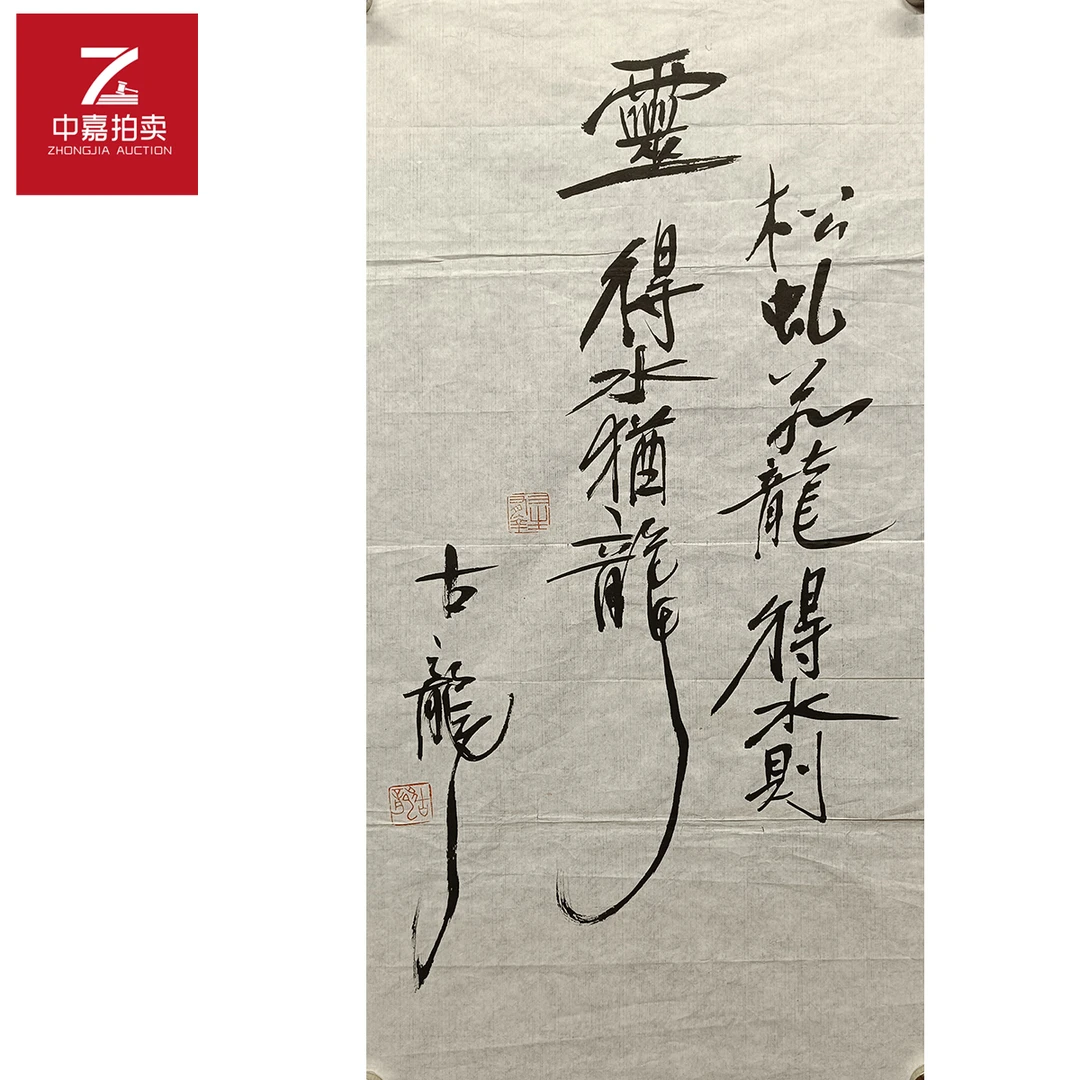 中嘉拍卖
ZHONGJIA AUCTION
松虬若龍得水則
靈得水猶龍
古龍